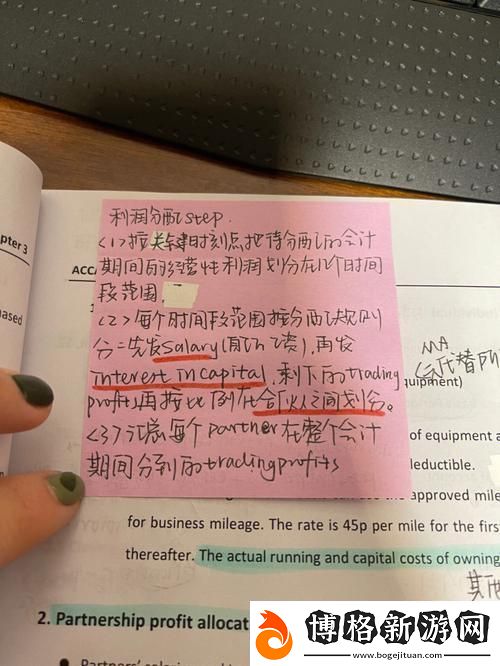 利润分配step.
<1>按关键时刻点,把待分配的会计
期间的经营性利润划分在几个时间
段范围.
<2>每个时间段范围按分配规则
分:先发salary(前几工资),再发
interest in capital,剩下的trading
profits再按比例在合伙人之间划分。
<3>汇总每个partner在整个会计
期间分到的trading profits
pter 3
ased
ACCA
MA
会代替
quipment)
of equipment a
deductible.
approved mile
for business mileage. The rate is 45p per mile for the first
thereafter. The actual running and capital costs of owning
2. Partnership profit allocat
Partners'
博格新游网
www.bogejituan.com